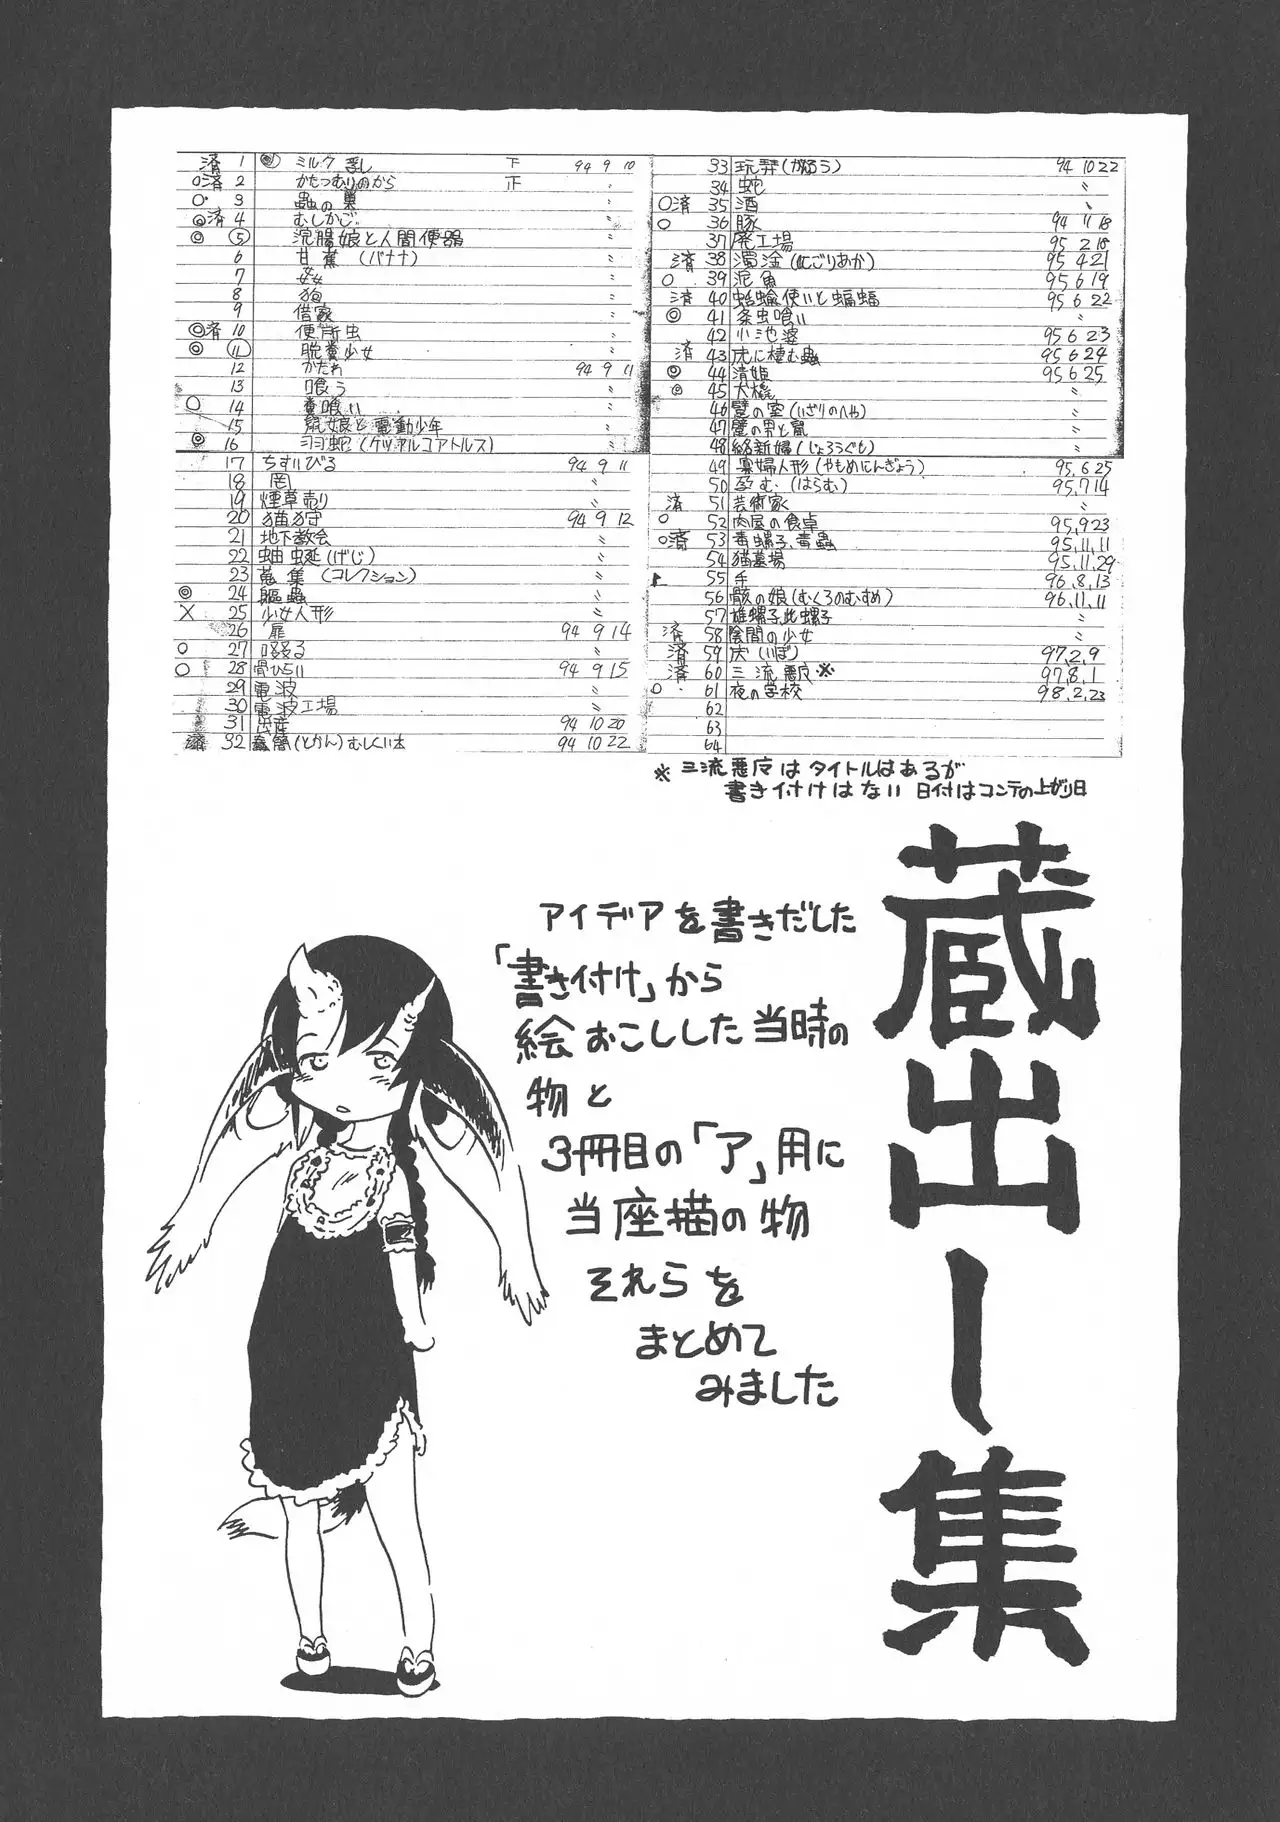 済 1 ミルク 乳し 下 94 9 10
○済 2 かたつむりのから 正 〃
○ 3 蟲の巣 〃
◎済 4 むしかご 〃
◎ 5 浣腸娘と人間便器 〃
6 甘蕉 (バナナ) 〃
7 姦 〃
8 狗 〃
9 借家 〃
◎済 10 便所虫 〃
◎ 11 脱糞少女 〃
12 かたわ 94 9 11
13 喰う 〃
○ 14 糞喰い 〃
15 鼠娘と電動少年 〃
◎ 16 羽蛇 (ケツァルコアトルス) 〃
17 ちすいびる 94 9 11
18 罔 〃
19 煙草売り 〃
20 猫狩 94 9 12
21 地下教会 〃
22 蚰蜒(げじ) 〃
23 蒐集 (コレクション) 〃
◎ 24 軀蟲 〃
× 25 少女人形 〃
26 扉 94 9 14
○ 27 〃
○ 28 骨ひろい 94 9 15
29 電波 〃
30 電波工場 〃
31 出産 94 10 20
済 32 蠧簡(とかん)むしくい本 94 10 22
33 玩弄(がろう) 94 10 22
34 蛇 〃
○済 35 酒 〃
○ 36 豚 94 11 18
37 廃工場 95 2 18
済 38 濁淦(にごりあか) 95 4 21
○ 39 泥魚 95 6 19
済 40 蛞蝓使いと蝙蝠 95 6 22
◎ 41 条虫喰い 〃
42 小池婆 95 6 23
済 43 床に棲む蟲 95 6 24
◎ 44 清姫 95 6 25
◎ 45 犬橇
46 躄の室(いざりのへや)
47 躄の男と鼠
48 絡新婦(じょろうぐも)
49 寡婦人形(やもめにんぎょう) 95.6.25
50 孕む(はらむ) 95.7.14
済 51 芸術家 〃
○ 52 肉屋の食卓 95.9.23
○済 53 毒螺子、毒蟲 95.11.11
54 猫墓場 95.11.29
55 手 96.8.13
56 骸の娘(むくろのむすめ) 96.11.11
57 雄螺子、雌螺子 〃
済 58 陰間の少女 〃
済 59 疣(いぼ) 97.2.9
済 60 三流悪夜※ 97.8.1
○ 61 夜の学校 98.2.23
62
63
64
※ 三流悪夜はタイトルはあるが
書き付けはない 日付はコンテの上がり日
蔵出し集
アイデアを書きだした
「書き付け」から
絵おこしした当時の
物と
3冊目の「ア」用に
当座描の物
それらを
まとめて
みました